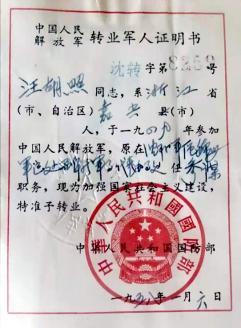 中国人民
解放军 转业军人证明书
沈转字第3259号
汪胡熙 同志，系 浙江 省
（市、自治区） 嘉兴 县（市）
人，于一九四九年参加
中国人民解放军，原在
任
职务，现为加强国家社会主义建设，
特准予转业。
中华人民共和国国防部
中華人民共和國國防部
一九五八年一月六日